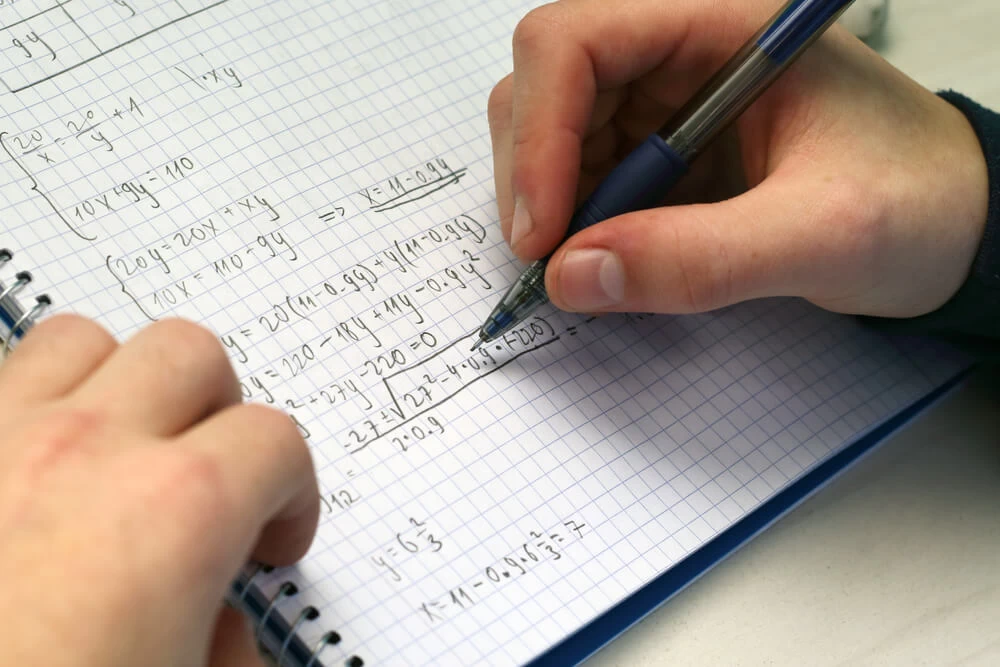 9y
y
20/x = 20/y + 1 \·xy
10x+9y=110
20y=20x+xy
10x=110-9y => x=11-0.9y
y=20(11-0.9y)+y(11-0.9y)
y=220-18y+11y-0.9y²
y²+27y-220=0
-27±√27²-4·0.9·(-220) =
2·0.9
1,2 =
y=6 2/3
x=11-0.9·6 2/3=7